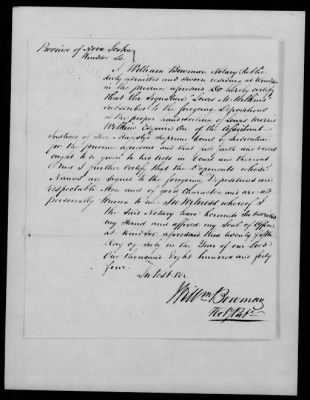 Province of Nova Scotia
Windsor Ss.
I William Bowman Notary Public
duly admitted and sworn residing at Windsor
in the province aforesaid Do hereby certify
that the Signature "Lewis M. Wilkins"
subscribed to the foregoing Depositions
is the proper handwriting of Lewis Morris
Wilkins Esquire One of the Assistant
Justices of Her Majesty's Supreme Court of Judicature
for the province aforesaid and that full faith and credit
ought to be given to his Acts in Court and thereout
And I further certify that the Deponents whose
Names are signed to the foregoing Depositions are
respectable Men and of good Character and are all
personally known to me. In Witness whereof I
the said Notary have hereunto Subscribed
my Hand and affixed my Seal of Office
at Windsor aforesaid this twenty fifth
Day of July in the Year of our Lord
One thousand Eight hundred and forty
four.
In Test. Ver.
Will<sup>m</sup> Bowman
Not. Pub.